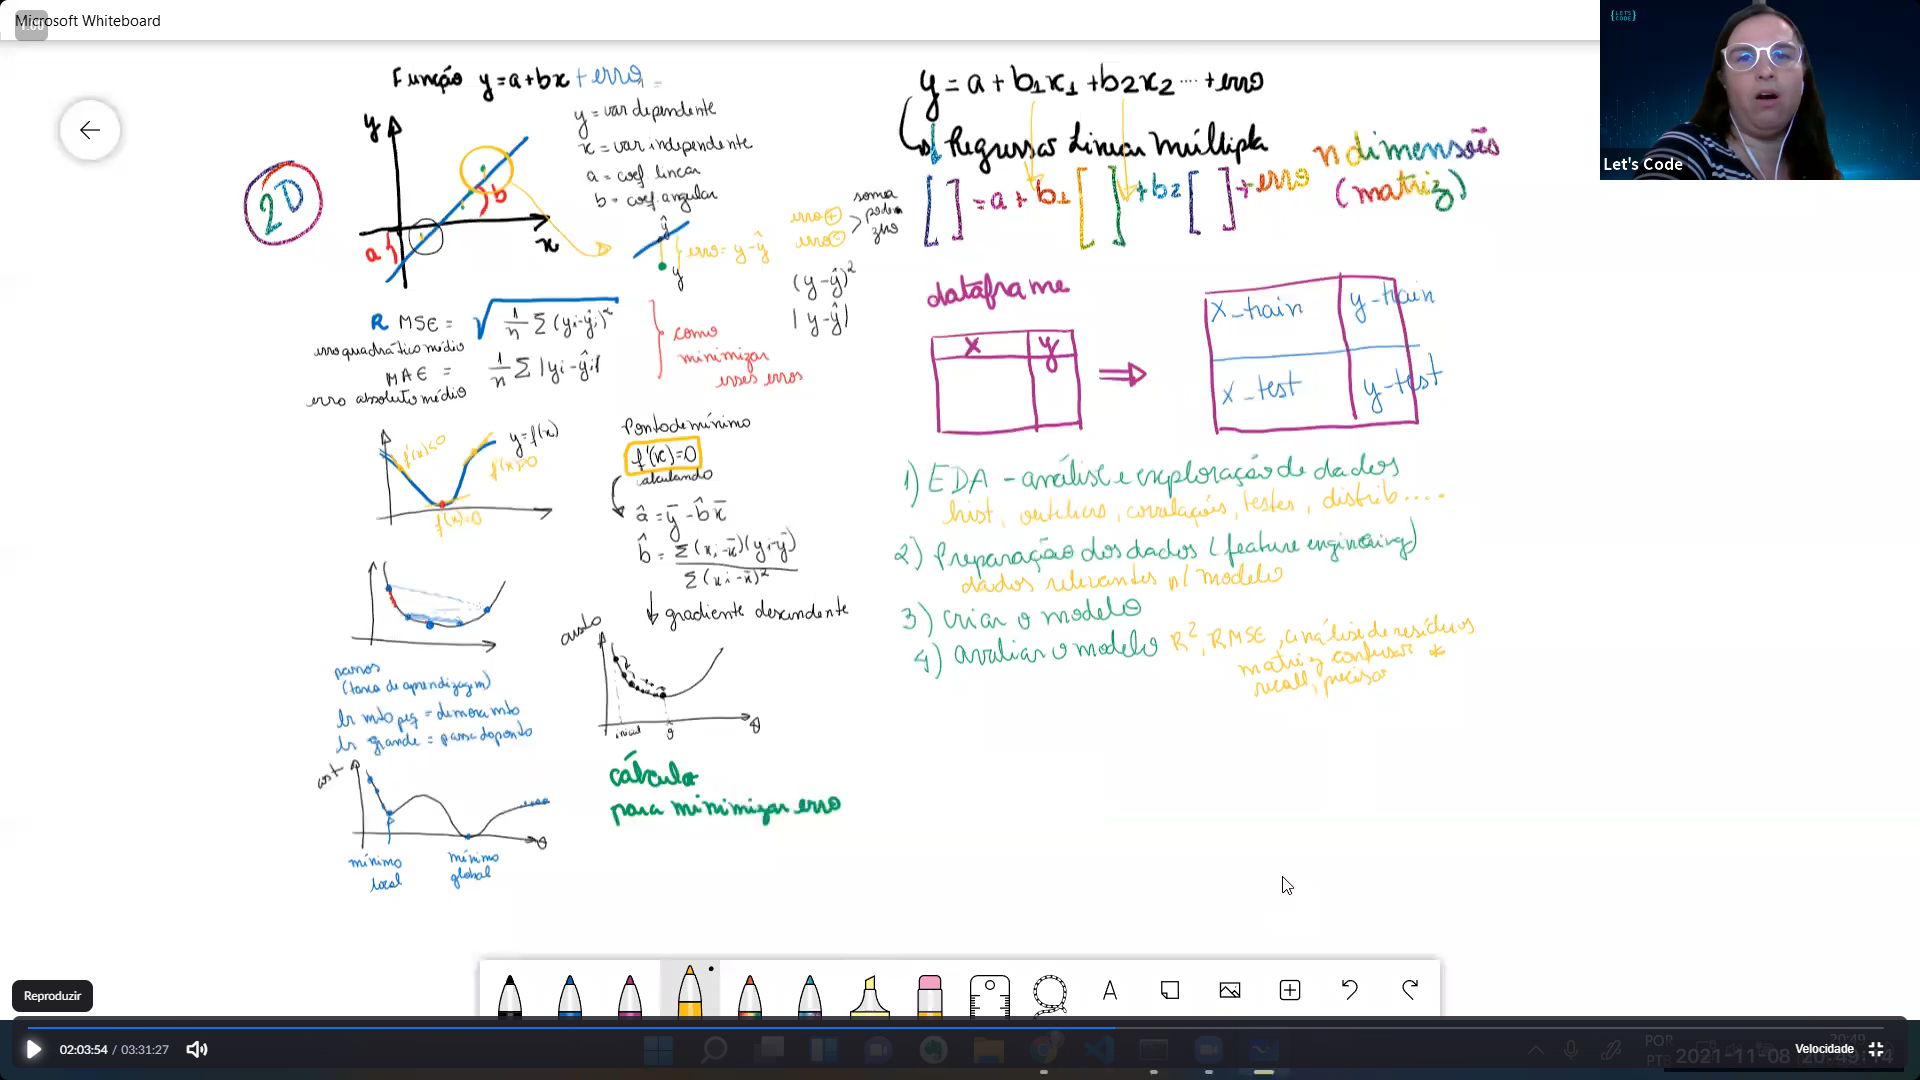 Microsoft Whiteboard
{LET'S CODE}
Let's Code
Função y=a+bx+erro
y = var dependente
x = var independente
a = coef linear
b = coef. angular
2D
y
x
a
b
ŷ
y
erro = y-ŷ
erro +
erro -
soma
pode
zero
(y-ŷ)²
|y-ŷ|
R MSE = √ 1/n Σ(yi-ŷi)²
erro quadrático médio
MAE = 1/n Σ|yi-ŷi|
erro absoluto médio
como
minimizar
esses erros
f'(x)<0
y=f(x)
f'(x)>0
f'(x)=0
Ponto de mínimo
f'(x)=0
calculando
â = ȳ - b̂x̄
b̂ = Σ(xi-x̄)(yi-ȳ)
Σ(xi-x̄)²
gradiente descendente
custo
inicial
θ̂
θ
passos
(taxa de aprendizagem)
lr mto peq = demora mto
lr grande = passa do ponto
cost
θ
mínimo
local
mínimo
global
cálculo
para minimizar erro
y = a + b1x1 + b2x2 .... + erro
Regressao Linear Múltipla
n dimensões
(matriz)
[ ] = a + b1 [ ] + b2 [ ] + erro
dataframe
x y
x_train y-train
x_test y-test
1) EDA - análise e exploração de dados
hist, outliers, correlações, testes, distrib.....
2) Preparação dos dados (feature engineering)
dados relevantes p/ modelo
3) criar o modelo
4) avaliar o modelo R², RMSE, análise de resíduos
matriz confusao *
recall, precisao
A
Reproduzir
02:03:54 / 03:31:27
Velocidade
POR
2021-11-08 20:49:14